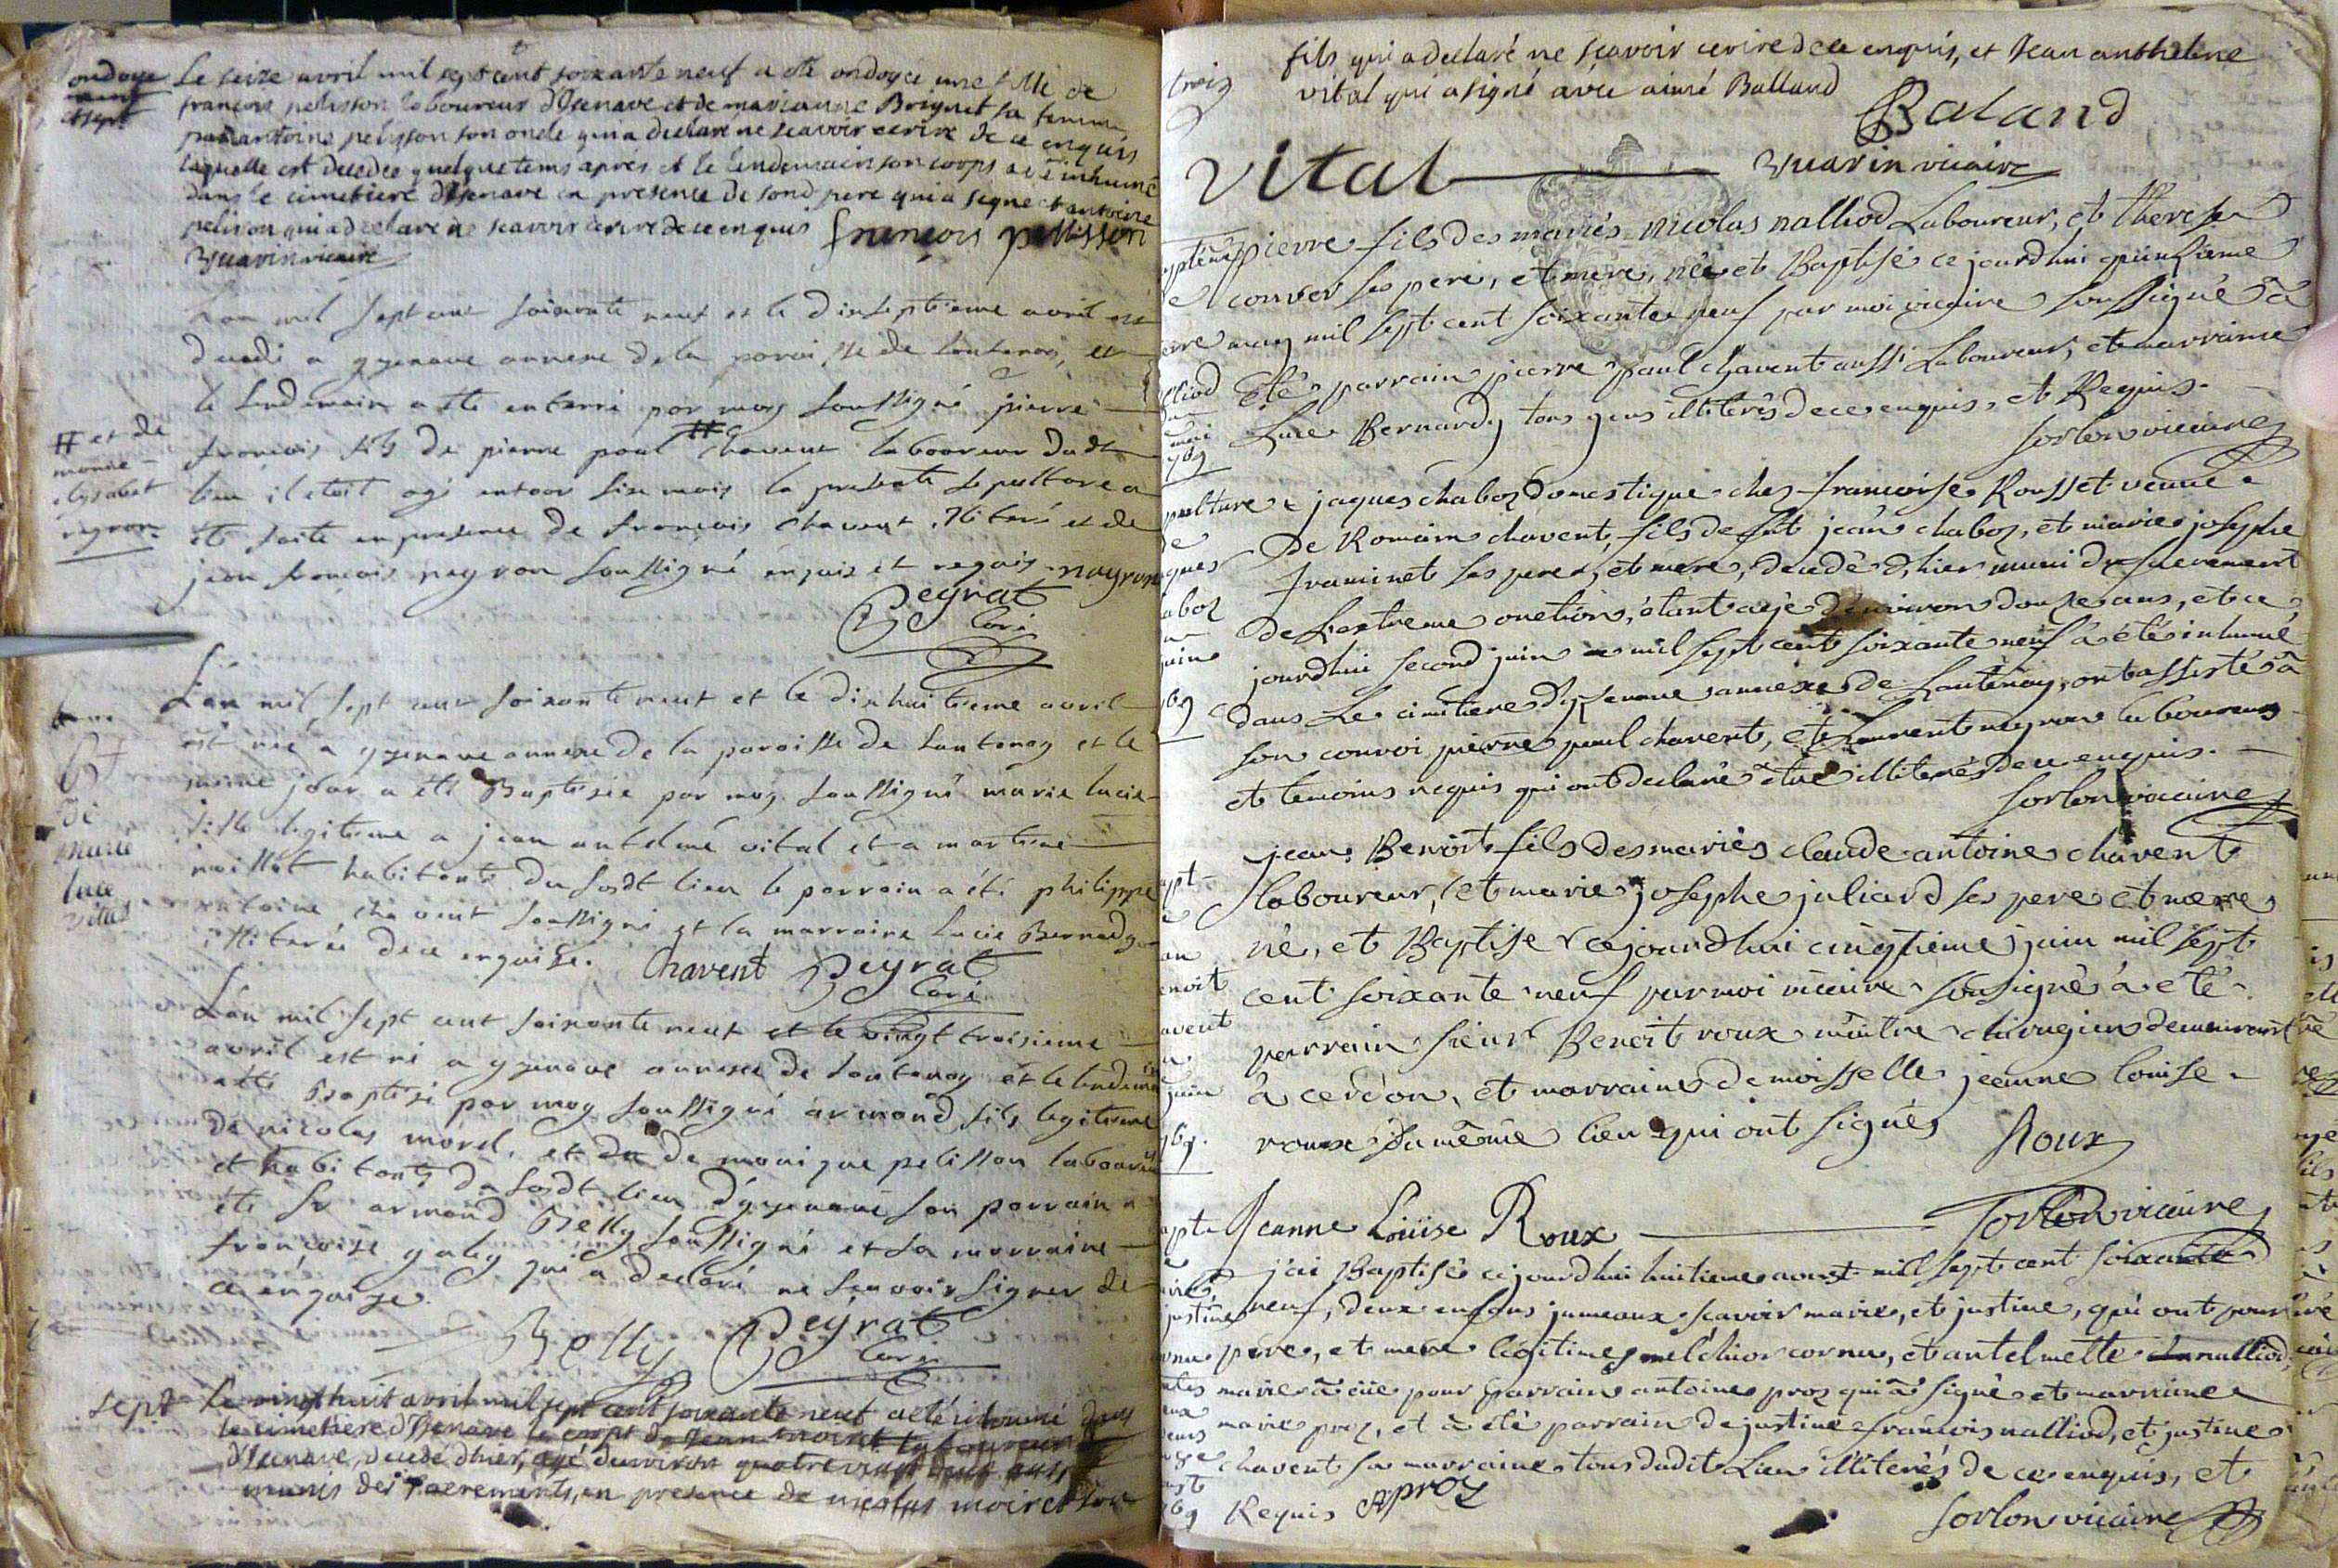 ondoye
Le seize avril mil sept cent soixante neuf a été ondoyée une fille de
françois pelisson laboureur d'Isenave et de marieanne Boignet sa femme
par antoine pelisson son oncle qui a declaré ne scavoir ecrire de ce enquis
laquelle est decedee quelque tems aprés et le lendemain son corps a été inhumé
dans le cimetiere d'Isenave en presence de sond pere qui a signé et antoine
pelisson qui a declaré ne scavoir ecrire de ce enquis françois pellisson
vicaire
L'an mil sept cent soixante neuf et le dixseptieme avril est
decedé a yzenave annexe de la paroisse de lantenay, et
le lendemain a été enterré par moy soussigné pierre
francois fils de pierre paul # chavent laboureur dudt
# et de
marie
elysabet
neyron
lieu il etoit agé entour six mois la presente sepulture a
été faite en presence de françois chavent illiteré et de
jean francois neyron soussigné enquis et requis neyron
Peyrat
Curé
L'an mil sept cent soixante neuf et le dixhuitieme avril
est née a yzenave annexe de la paroisse de lantenay et le
meme jour a été Baptisée par moy soussigné marie lucie
de
marie
luce
vital
fille legitime a jean antelme vital et a martine
maillot habitants du susdt lieu le parrain a été philippe
antoine chavent soussigné et la marraine lucie Bernardy
illiterée de ce enquise. Chavent Peyrat
Curé
L'an mil sept cent soixante neuf et le vingt troisieme
avril est né a yzenave annexe de lantenay et le lendemain
a été Baptisé par moy soussigné armand fils legitime
de nicolas morel, et de monique pelisson laboureurs
et habitants du susdt lieu d'yzenave son parrain a
été sr armand Belly soussigné et sa marraine
françoise qui a declaré ne scavoir signer de
ce enquise.
Belly Peyrat
Curé
sept
Le vingt huit avril mil sept cent soixante neuf a été inhumé dans
le cimetiere d'Isenave le corps de Jean moiret laboureur
d'Isenave, decedé d'hier, agé d'environ quatre vingt deux ans,
munis des sacrements, en presence de nicolas moiret son
trois
fils qui a declaré ne scavoir ecrire de ce enquis, et Jean anthelme
vital qui a signé avec aimé Balland
Baland
vital
vicaire
pierre fils des mariés nicolas nalliod Laboureur, et therese
convers ses pere, et mere, né et Baptisé ce jourdhui quinzieme
may mil sept cent soixante neuf par moi vicaire soussigné à
été parrain pierre paul chavent aussi Laboureur, et marraine
Luce Bernardy tous gens illiterés de ce enquis, et Requis.
sorlon vicaire
jaques chaboz domestique chez francoise Rousset veuve
De Romain chavent, fils de fut jean chaboz, et marie josephe
framinet ses pere, et mere, decedé d'hier muni du sacrement
de l'extreme onction, étant agé d'environ douze ans, et ce
jourdhui second juin mil sept cent soixante neuf à été inhumé
dans Le cimetiere d'yzenave annexe de Lantenay, ont assisté à
son convoi pierre paul chavent, et Laurent neyron laboureurs
et temoins requis qui ont declaré être illiterés de ce enquis.
sorlon vicaire
jean Benoit fils des mariés claude antoine chavent
laboureur, et marie josephe juliard ses pere et mere
né, et Baptise cejourdhui cinqtieme juin mil sept
cent soixante neuf par moi vicaire sousigné à été
parrain sieur Benoit roux maitre chirugien demeurant
à cerdon, et marraine demoisselle jeanne louise
roux du même lieu qui ont signés Roux
Jeanne Louise Roux sorlon vicaire
j'ai Baptisé cejourdhui huitieme aoust mil sept cent soixante
neuf, deux enfans jumeaux scavoir marie, et justine, qui ont pour
père, et mere légitimes melchior cornu, et antelmette nalliod,
marie à eüe pour parrain antoine proz qui à signé et marraine
marie proz, et à été parrain de justine francois nalliod, et justine
chavent sa marraine tous dudit Lieu illiterés de ce enquis, et
Requis Aproz
sorlon vicaire